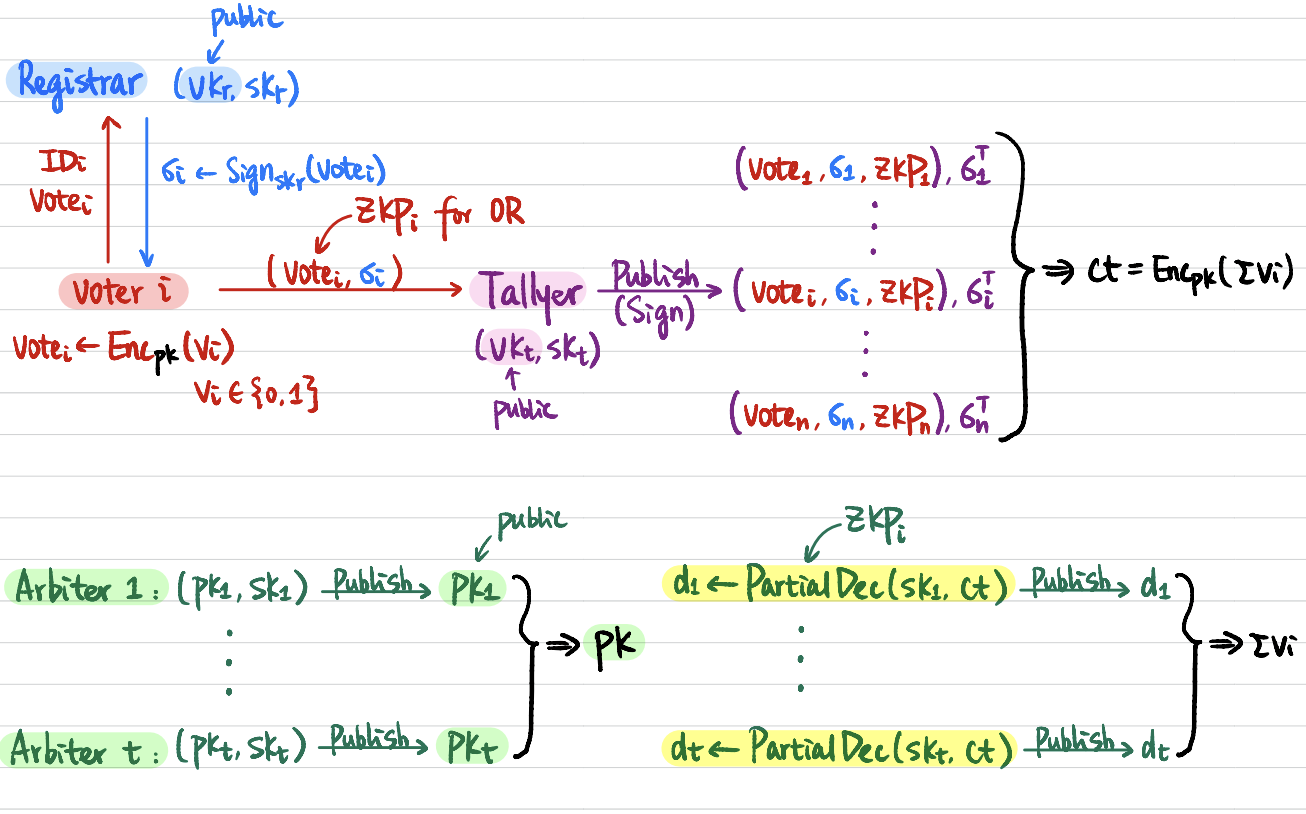 public
Registrar (vkr, skr)
IDi
Votei
σi ← Sign_skr(Votei)
ZKPi for OR
(Votei, σi)
Voter i
Votei ← Enc_pk(Vi)
Vi ∈ {0,1}
Tallyer
(vkt, skt)
public
Publish
(Sign)
(Vote1, σ1, ZKP1), σ1^T
(Votei, σi, ZKPi), σi^T
(Voten, σn, ZKPn), σn^T
⇒ ct = Enc_pk(ΣVi)
public
Arbiter 1: (pk1, sk1) Publish→ pk1
⇒ pk
Arbiter t: (pkt, skt) Publish→ pkt
ZKPi
d1 ← PartialDec(sk1, ct) Publish→ d1
⇒ ΣVi
dt ← PartialDec(skt, ct) Publish→ dt